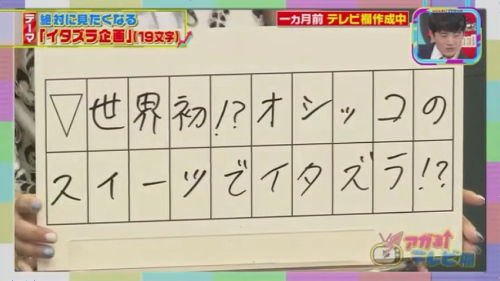 テーマ
絶対に見たくなる
「イタズラ企画」(19文字)
一カ月前 テレビ欄作成中
▽世界初!?オシッコの
スイーツでイタズラ!?
アガる↑
テレビ欄